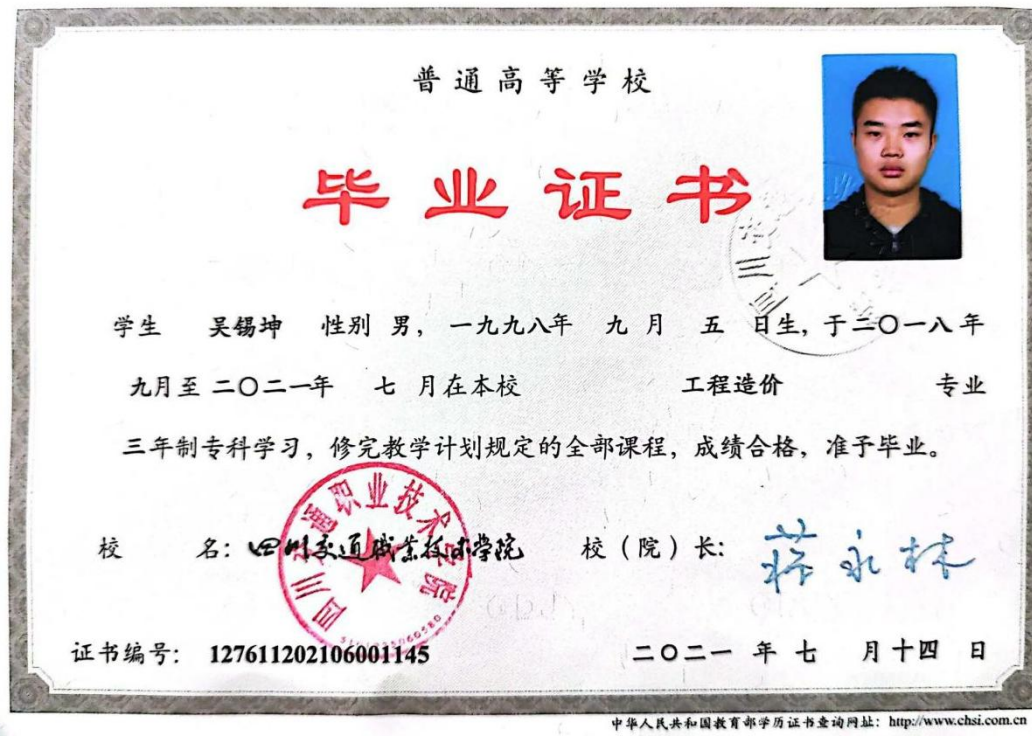 普通高等学校
毕业证书
学生 吴锡坤 性别 男，一九九八年 九 月 五 日生，于二〇一八年
九月至二〇二一年 七 月在本校 工程造价 专业
三年制专科学习，修完教学计划规定的全部课程，成绩合格，准予毕业。
校 名：四川交通职业技术学院 校（院）长：蒋永林
四川交通职业技术学院
证书编号：127611202106001145 二〇二一 年 七 月十四 日
中华人民共和国教育部学历证书查询网址：http://www.chsi.com.cn